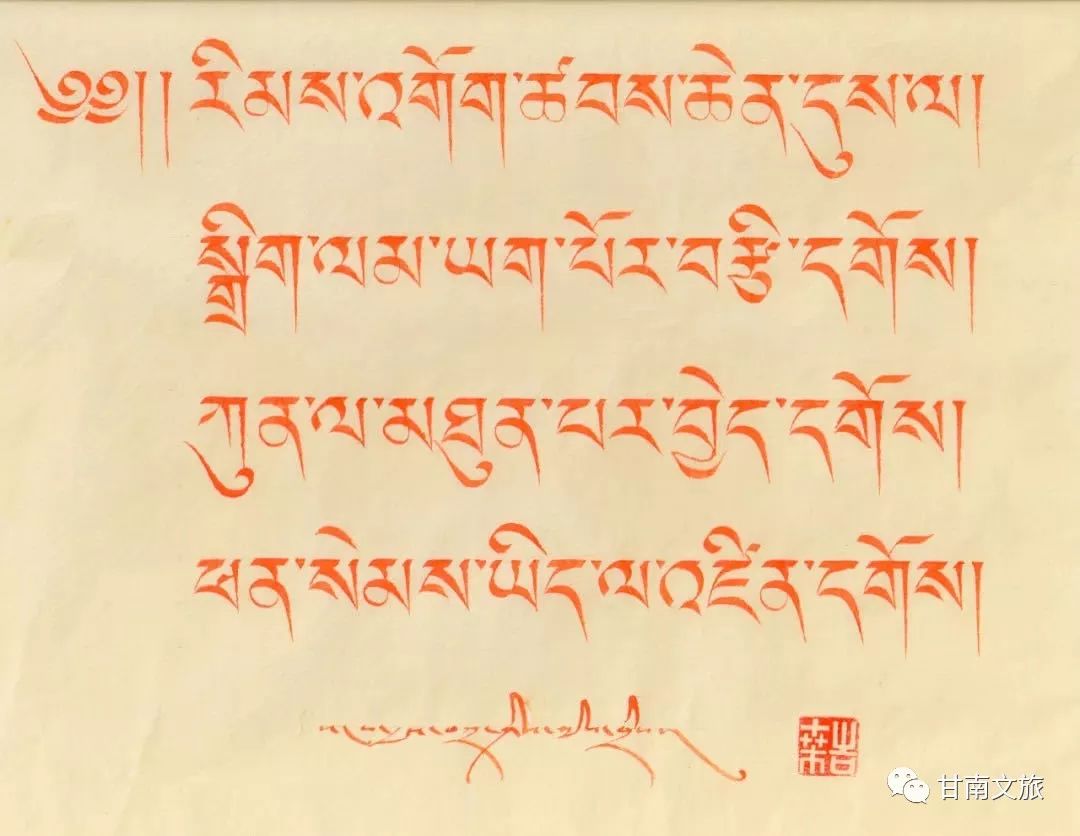 ༄༅།།རིམས་འགོག་ཚབས་ཆེན་དུས་ལ།
སྒྲིག་ལམ་ཡག་པོར་བརྩི་དགོས།
ཀུན་ལ་མཐུན་པར་བྱེད་དགོས།
ཕན་སེམས་ཡིད་ལ་འཛིན་དགོས།
甘南文旅